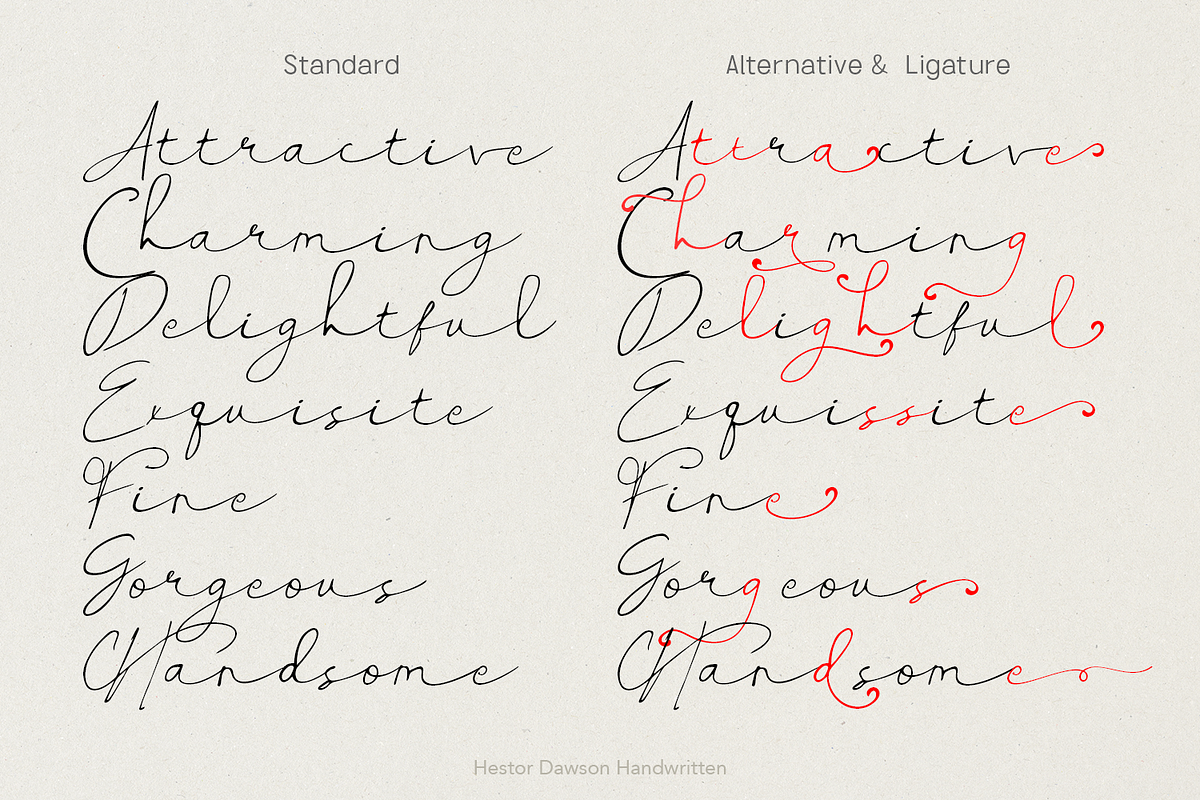 Standard
Attractive
Charming
Delightful
Exquisite
Fine
Gorgeous
Handsome
Alternative & Ligature
Attractive
Charming
Delightful
Exquissite
Fine
Gorgeous
Handsome
Hestor Dawson Handwritten